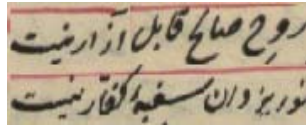 روح صالح قابل آزار نیست
نور یزدان سغبهٔ کفار نیست